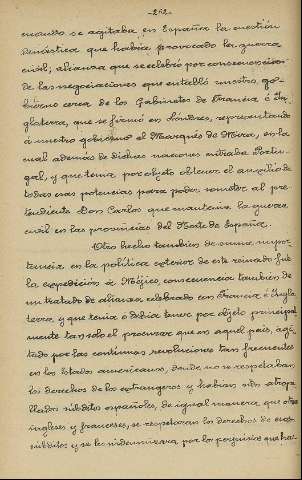 -242-
cuando se agitaba en España la cuestión
dinástica que había provocado la guerra
civil; alianza que se celebró por consecuencia
de las negociaciones que entabló nuestro go-
bierno cerca de los Gabinetes de Francia é In-
glaterra, que se firmó en Londres, representando
á nuestro gobierno el Marqués de Miraflores, en la
cual además de dichas naciones entraba Portu-
gal, y que tenía por objeto obtener el auxilio de
todas esas potencias para poder someter al pre-
tendiente Don Carlos que mantenía la guerra
civil en las provincias del Norte de España.
Otro hecho también de suma impor-
tancia en la política exterior de este reinado fué
la expedición á Méjico, consecuencia también de
un tratado de alianza celebrado con Francia é Ingla-
terra, y que tenía ó debía tener por objeto principal
mente tan solo el procurar que en aquel país, agi-
tado por las continuas revoluciones tan frecuentes
en los Estados americanos, donde no se respetaban
los derechos de los extrangeros y habían sido atrope-
llados súbditos españoles, de igual manera que otros
ingleses y franceses, se respetaran los derechos de esos
súbditos y se les indemnizara por los perjuicios que ha-